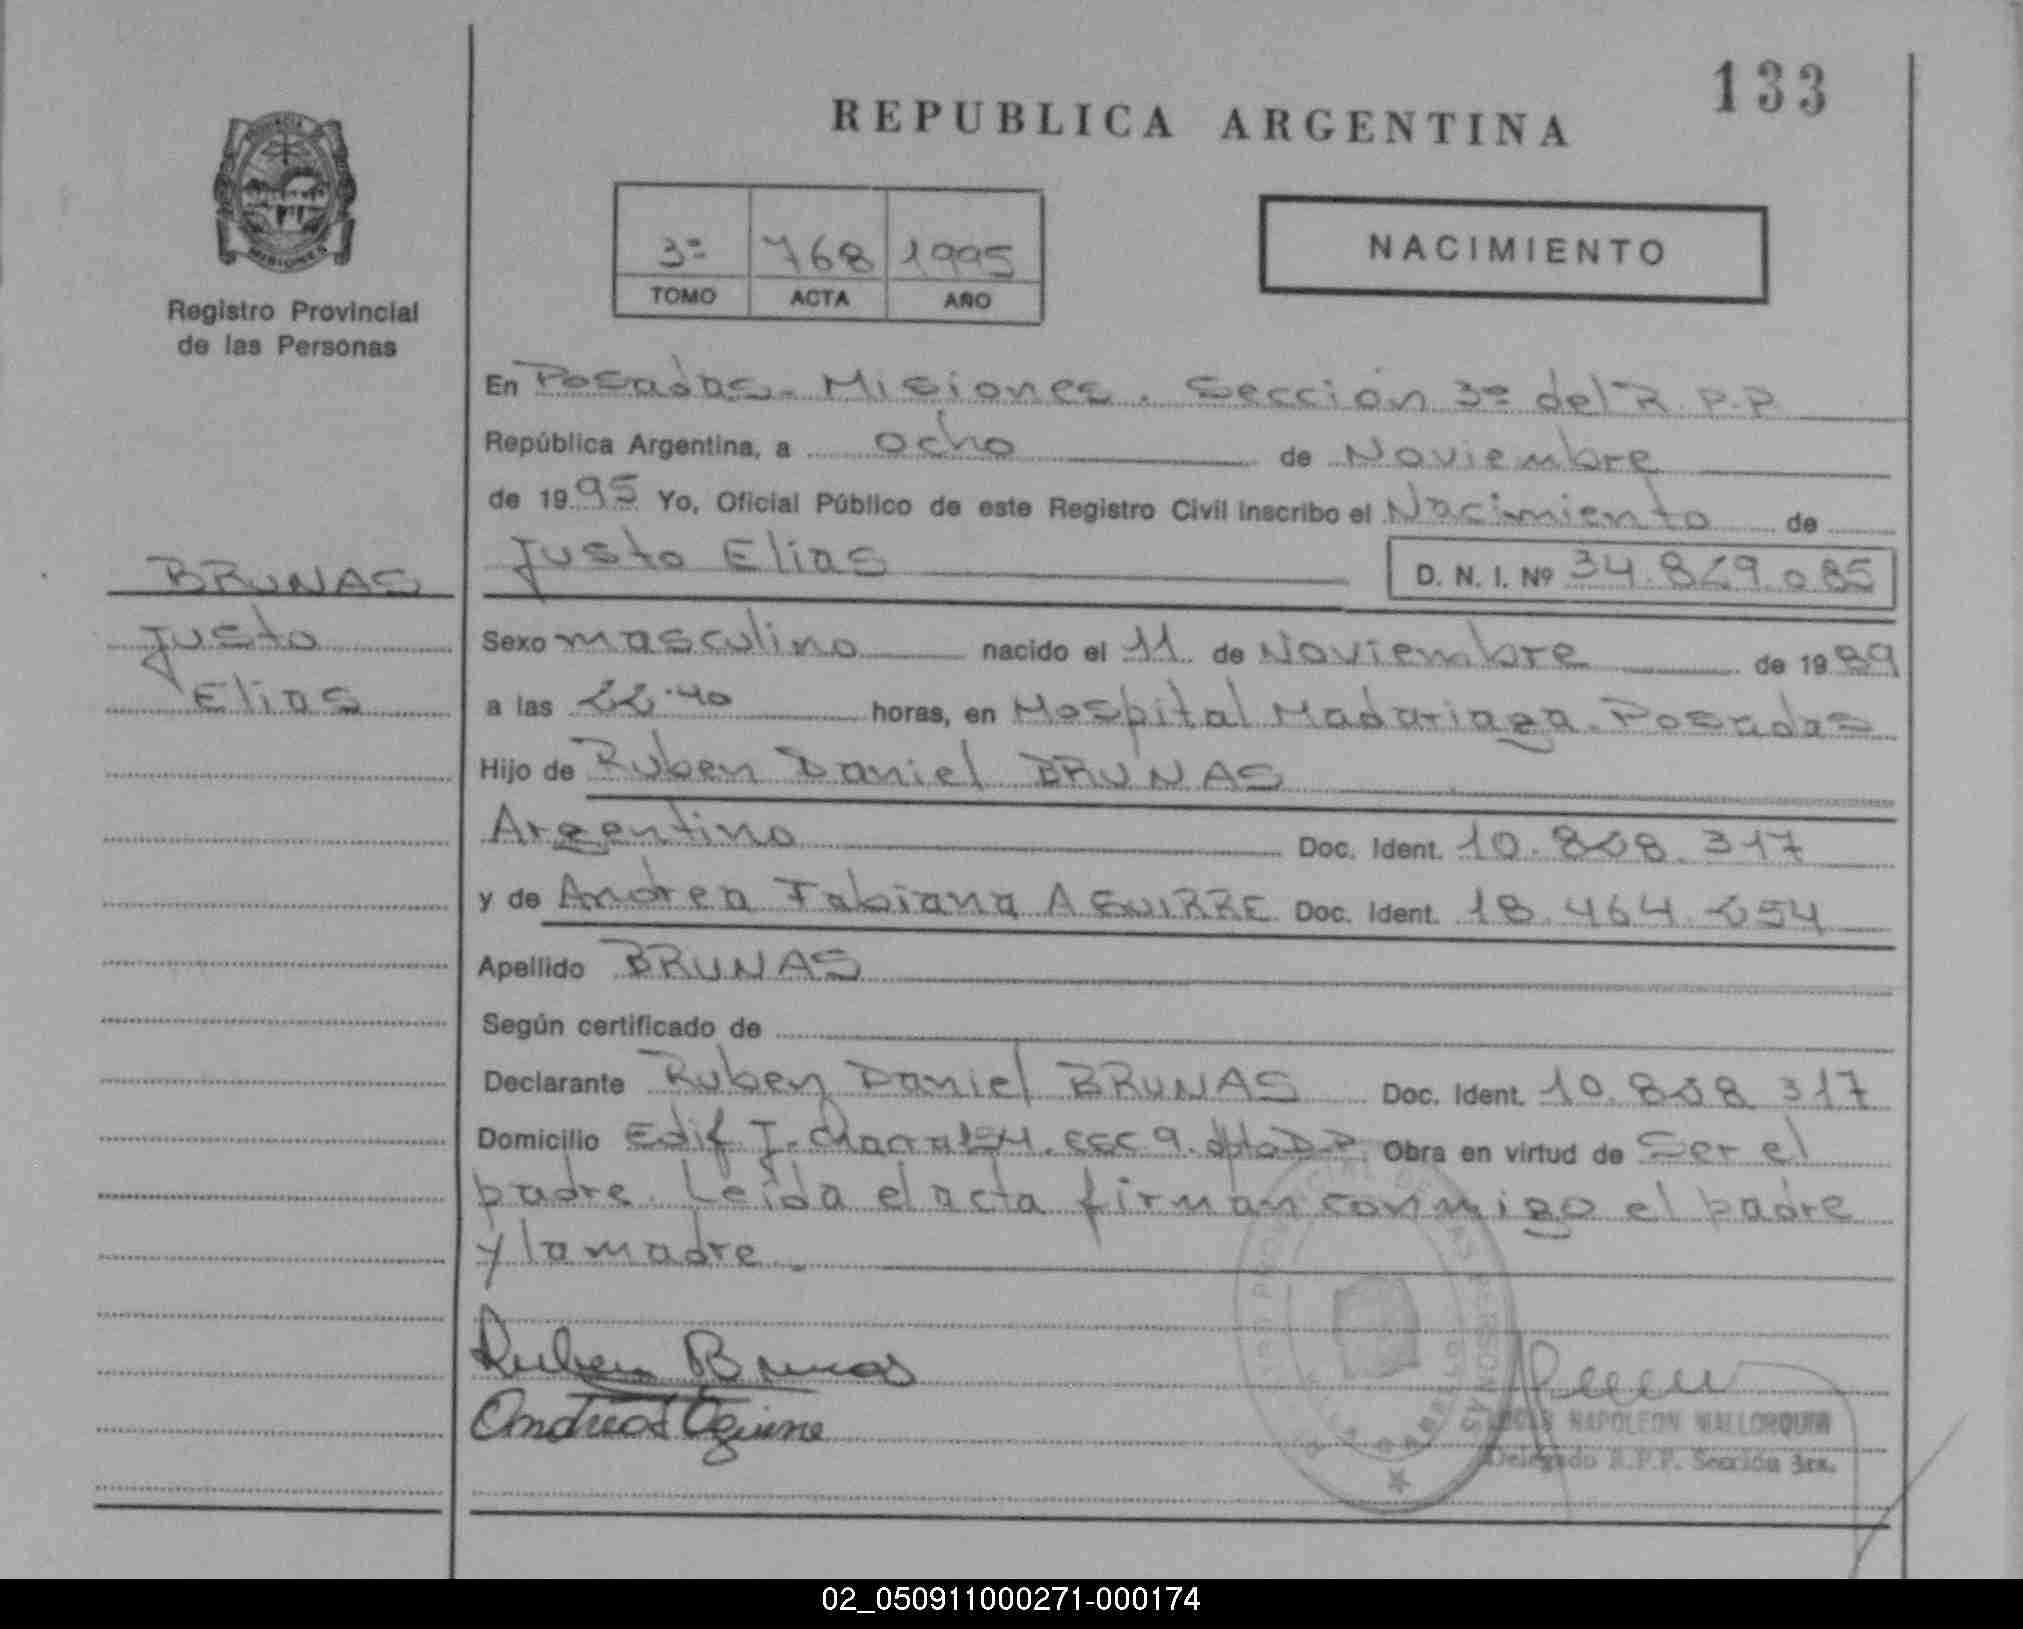 133
REPUBLICA ARGENTINA
PROVINCIA
MISIONES
Registro Provincial
de las Personas
3º 768 1995
TOMO ACTA AÑO
NACIMIENTO
En Posadas - Misiones. Sección 3º del R.P.P
República Argentina, a ocho de Noviembre
de 1995 Yo, Oficial Público de este Registro Civil inscribo el Nacimiento de
Justo Elias D. N. I. Nº 34.829.085
BRUNAS
Justo
Elias
Sexo masculino nacido el 11 de Noviembre de 1989
a las 22.40 horas, en Hospital Madariaga. Posadas
Hijo de Ruben Daniel BRUNAS
Argentino Doc. Ident. 10.808.317
y de Andrea Fabiana AGUIRRE Doc. Ident. 18.464.254
Apellido BRUNAS
Según certificado de
Declarante Ruben Daniel BRUNAS Doc. Ident. 10.808.317
Domicilio Edif. esc 9. Obra en virtud de Ser el
padre. Leída el acta firman conmigo el padre
y la madre.
Ruben Brunas
Andrea Aguirre
NAPOLEON MALLORQUIN
Delegado R.P.P. Sección 3ra.
02_050911000271-000174